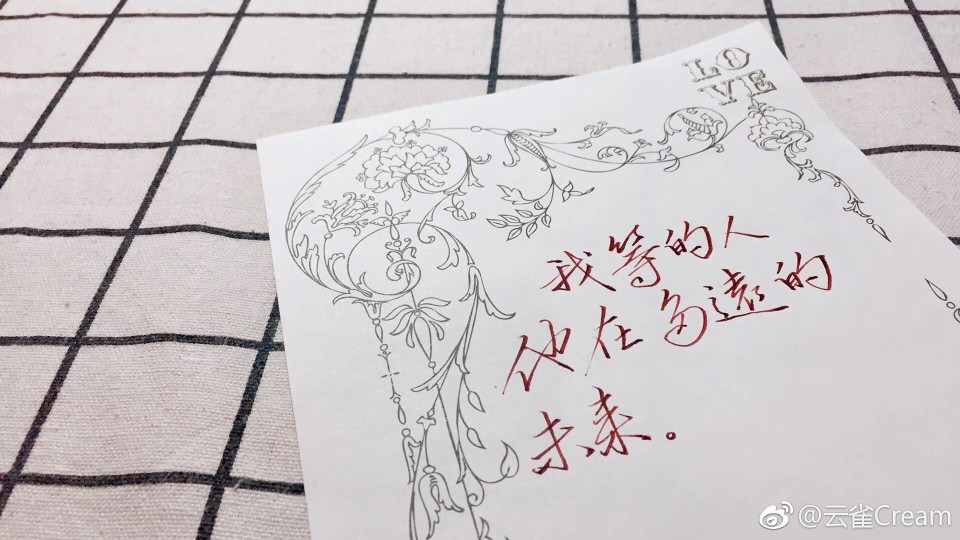 LO
VE
我等的人
他在多遠的
未来。
@云雀Cream